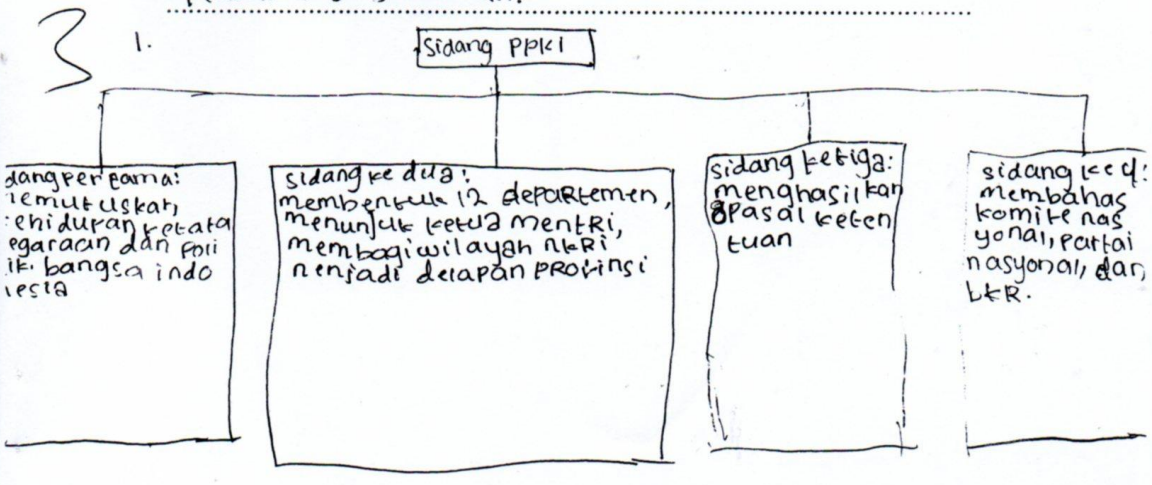 3 1.
Sidang PPKI
dang pertama:
memutuskan,
kehidupan ketata
egaraan dan poli
ik. bangsa indo
nesia
sidang ke dua:
membentuk 12 departemen,
menunjuk ketua mentri,
membagi wilayah NKRI
menjadi delapan provinsi
sidang ketiga:
menghasilkan
8 pasal keten
tuan
sidang ke 4:
membahas
komite nas
yonal, partai
nasyonal, dan
BKR.